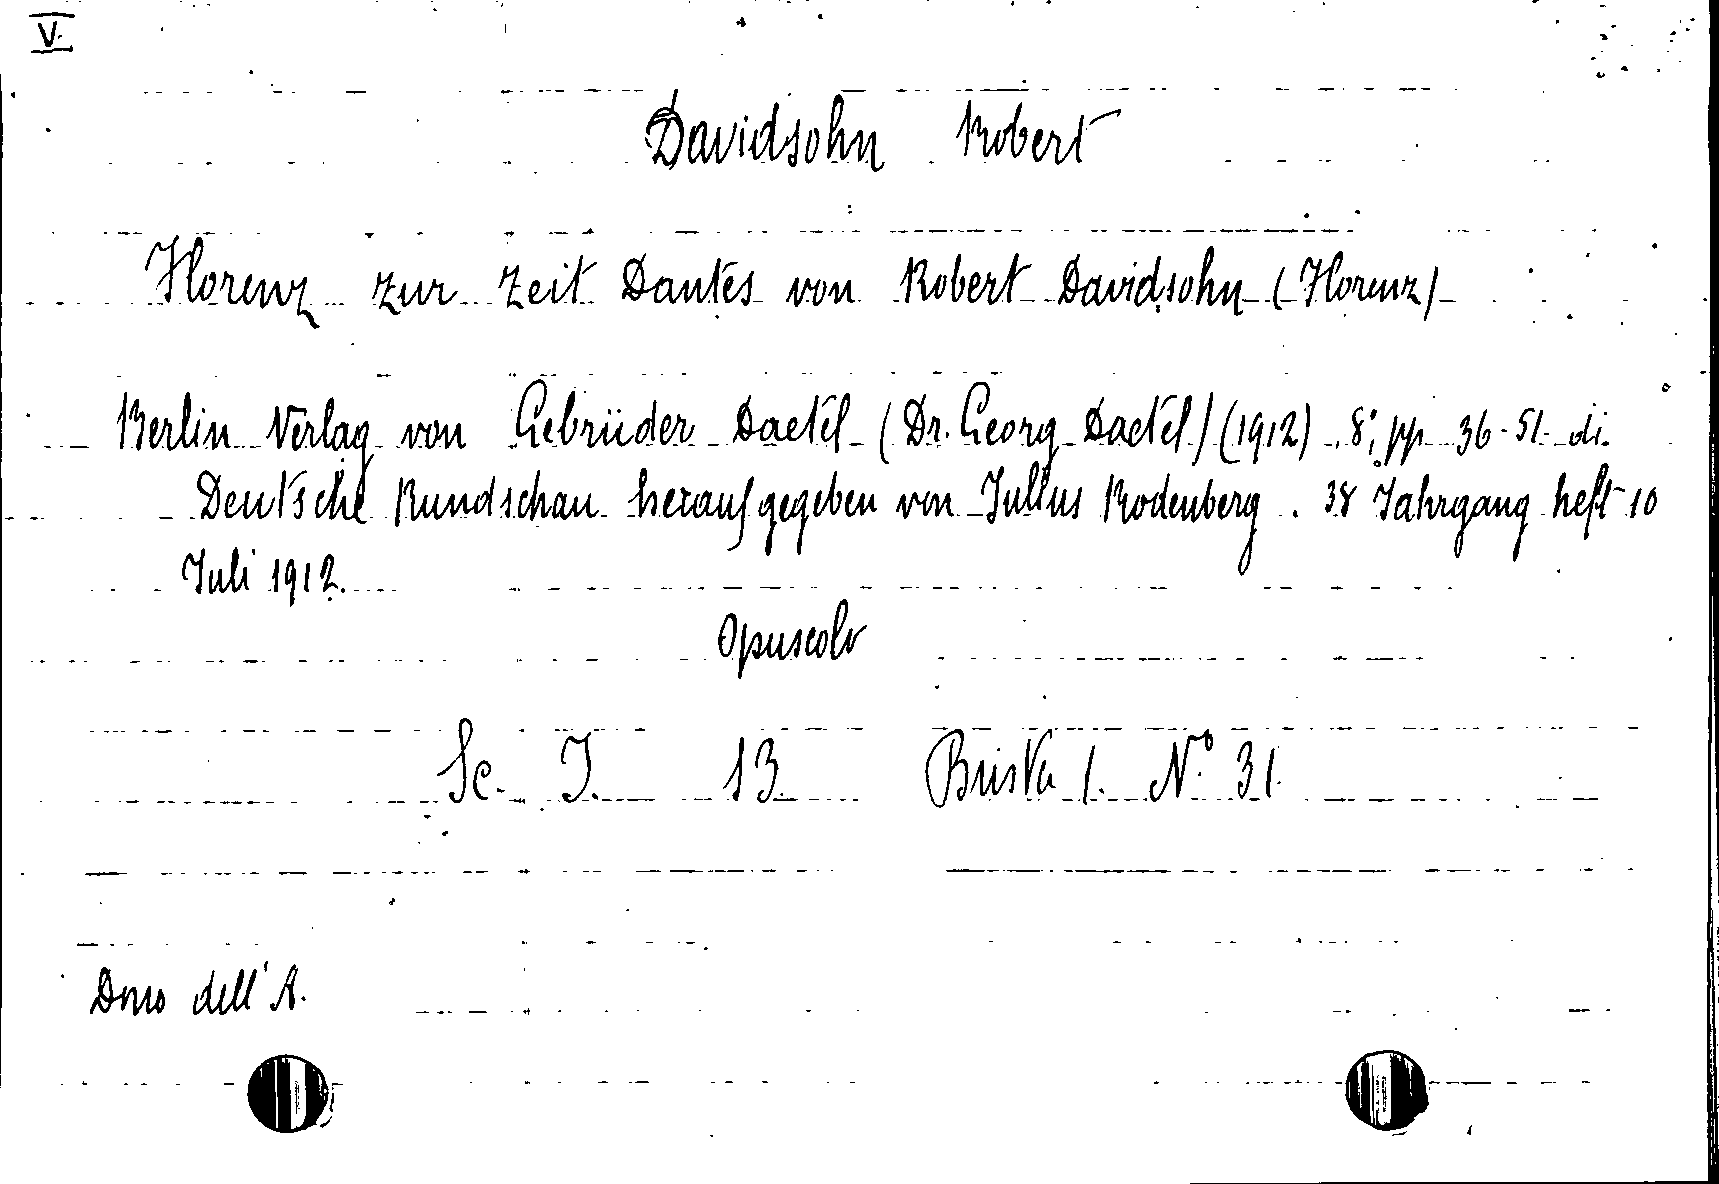 V.
Davidsohn Robert
Florenz zur Zeit Dantes von Robert Davidsohn (Florenz)
Berlin Verlag von Gebrüder Daetel (Dr. Georg Daetel) (1912) 8°, pp 36-51 di
Deutsche Rundschau herausgegeben von Julius Rodenberg. 38 Jahrgang heft 10
Juli 1912.
Opuscolo
Sc. I. 13 Busta 1. N.° 31.
Dono dell'A.